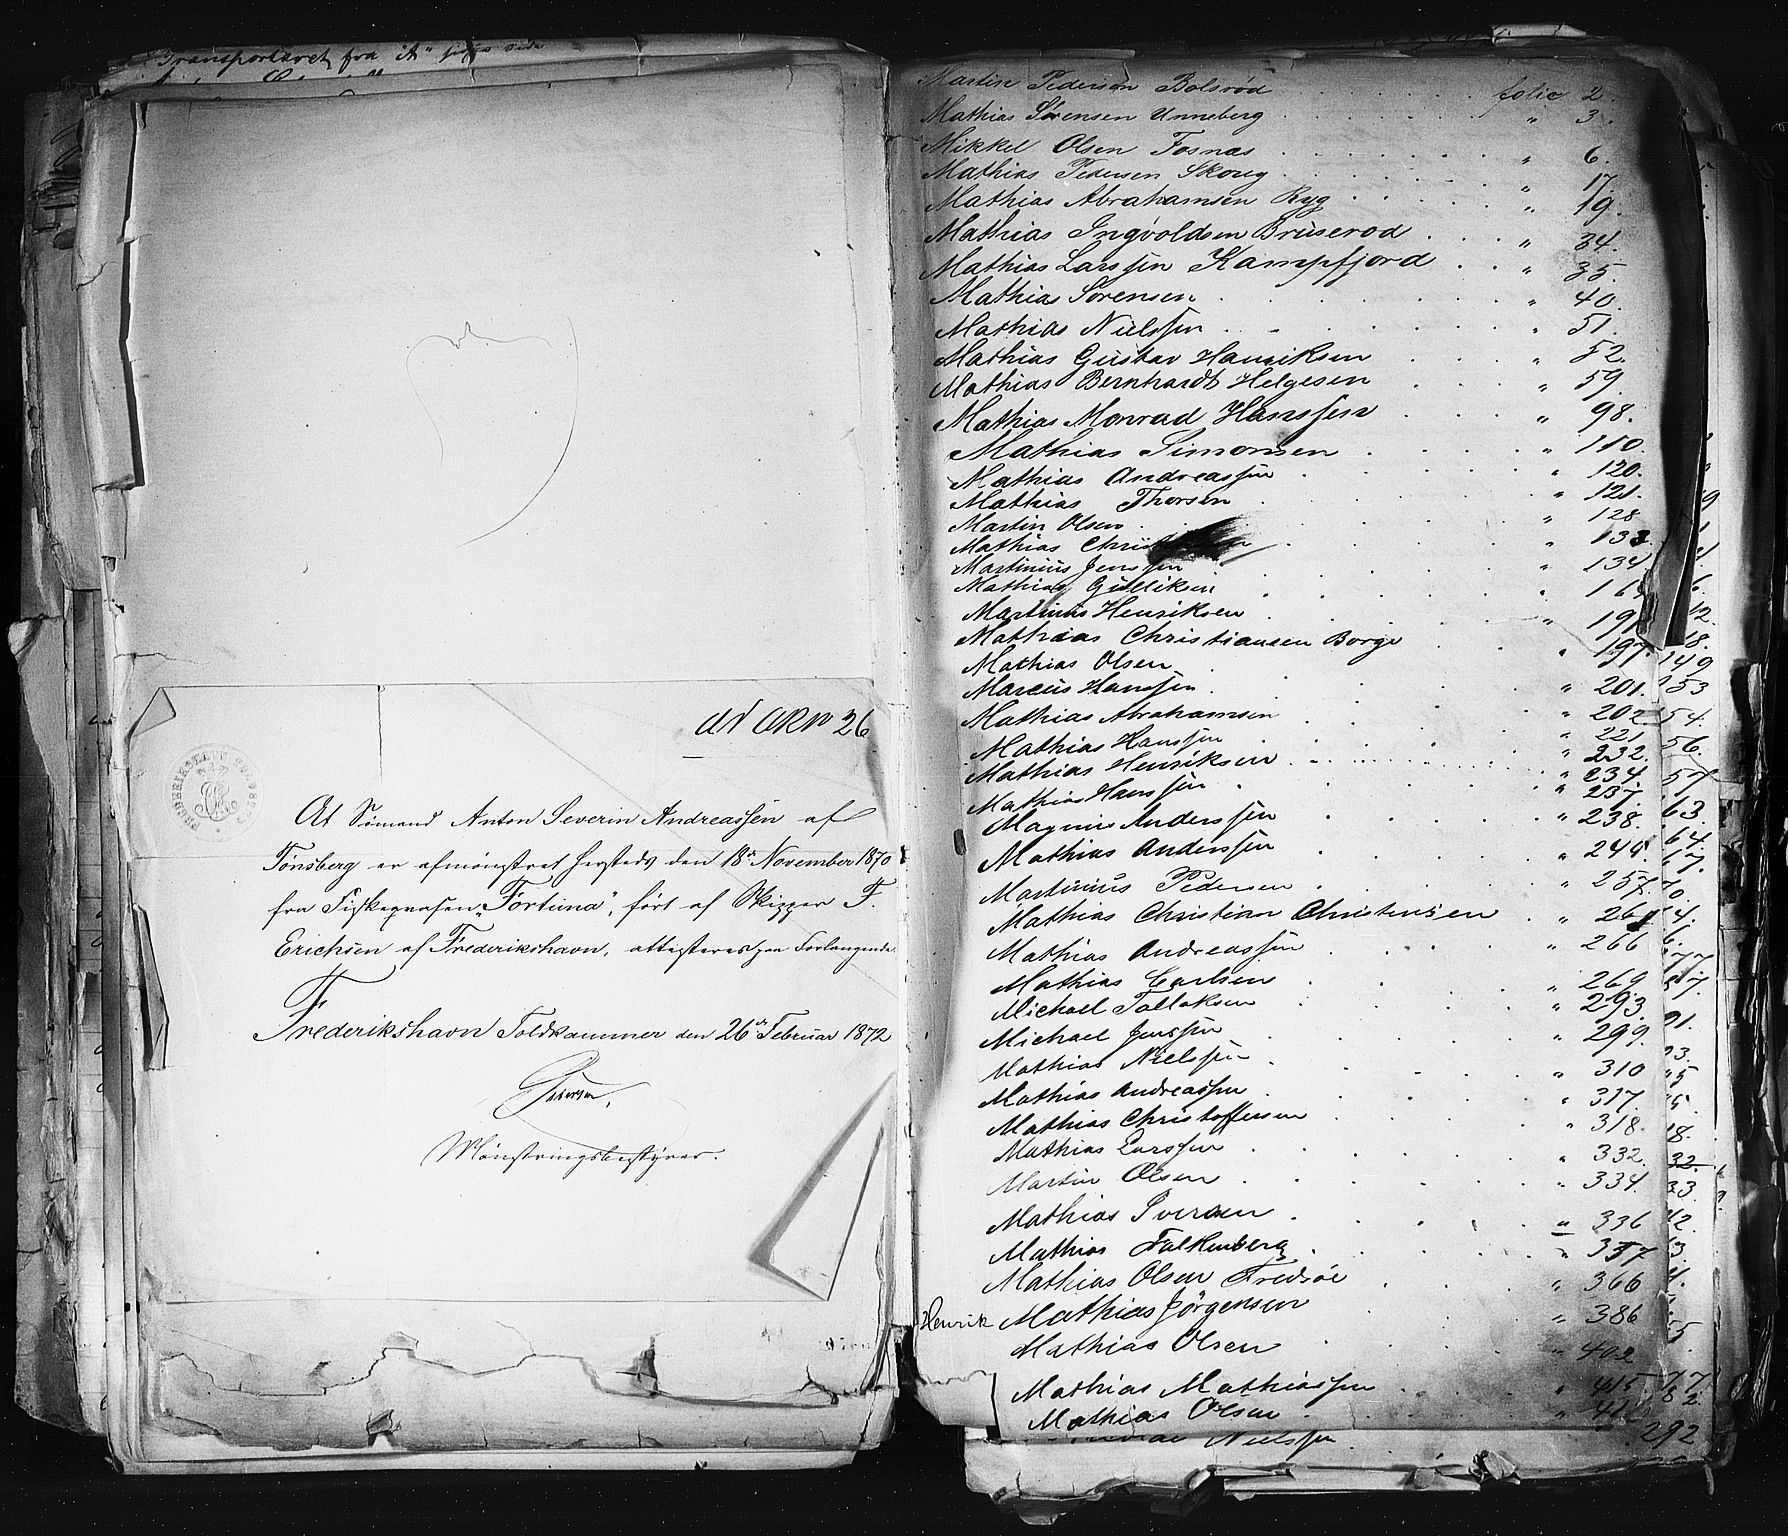 Transporteret fra "A" side
ad ARN 26
At Sömand Anton Severin Andreassen af
Tönsberg er afmönstret hersteds den 18de November 1870
fra Fiskeqvasen "Fortuna", fört af Skipper F.
Erichsen af Frederikshavn, attesteres paa Forlangende
Frederikshavn Toldkammer den 26de Februar 1872
Mönstringsbestyrer.
Martin Pedersen Bolsröd folio 2.
Mathias Sörensen Unneberg " 3.
Mikkel Olsen Fosnæs " 6.
Mathias Pedersen Skoug " 17.
Mathias Abrahamsen Ryg " 19.
Mathias Ingvoldsen Bruseröd " 34.
Mathias Larssen Kampfjord " 35.
Mathias Sörensen " 40.
Mathias Nielssen " 51.
Mathias Gustav Hansiksen " 52.
Mathias Bernhardt Helgesen " 59.
Mathias Monrad Hanssen " 98.
Mathias Simonsen " 110.
Mathias Andreassen " 120.
Mathias Thorsen " 121.
Martin Olsen " 128
Mathias " 133.
Martinius Jenssen " 134
Mathias Gulliksen " 16
Martinus Henriksen " 19
Mathias Christiansen Borge " 197.
Mathias Olsen
Marcus Hanssen " 201.
Mathias Abrahamsen " 202
Mathias Hanssen " 221
Mathias Henriksen " 232.
Mathias Hanssen " 234.
" 237.
Magnus Anderssen " 238.
Mathias Anderssen " 244.
Martinius Pedersen " 257.
Mathias Christian Christensen " 261
Mathias Andreassen " 266
Mathias Carlsen " 269
Michael Tollaksen " 293.
Michael Jenssen " 299.
Mathias Nielssen " 310
Mathias Andreassen " 317.
Mathias Christoffersen " 318.
Mathias Larssen " 332.
Martin Olsen " 334.
Mathias Iversen " 336
Mathias Falkenberg " 357
Mathias Olsen Fredsöe " 366
Henrik Mathias Jörgensen " 386
Mathias Olsen " 402
Mathias Mathiassen " 415
Mathias Olsen " 41
Nielssen 292